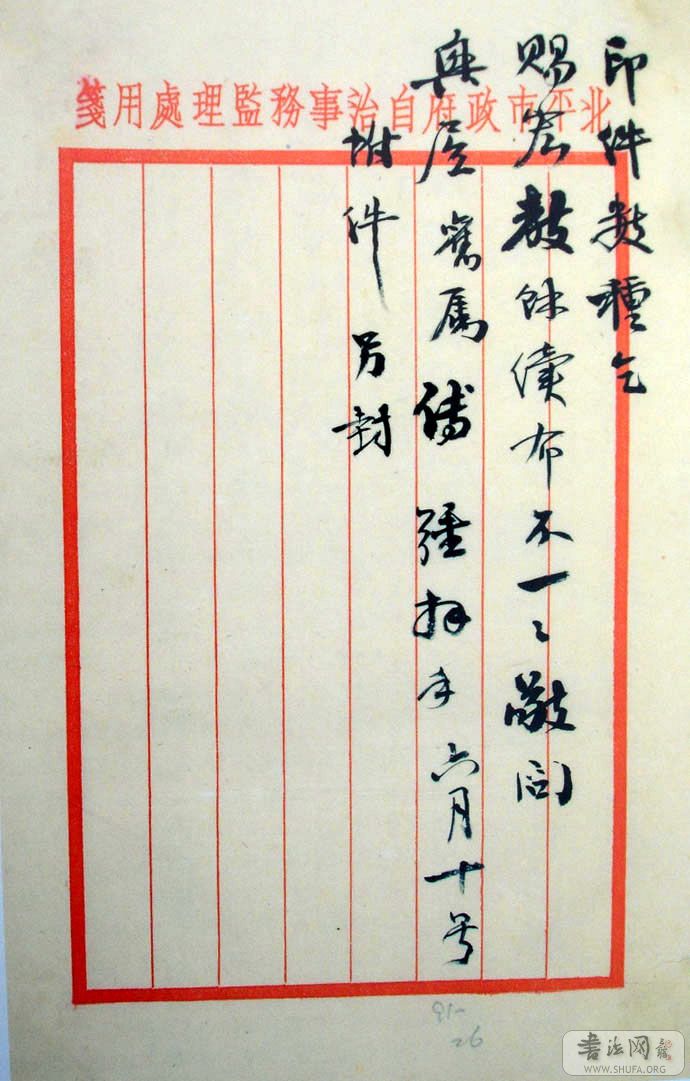 北平市政府自治事務監理處用箋
印件数種乞
賜教餘續布不一々敬問
興居舊属傅拜手六月十号
附件另封
91-
26
書法网
WWW.SHUFA.ORG